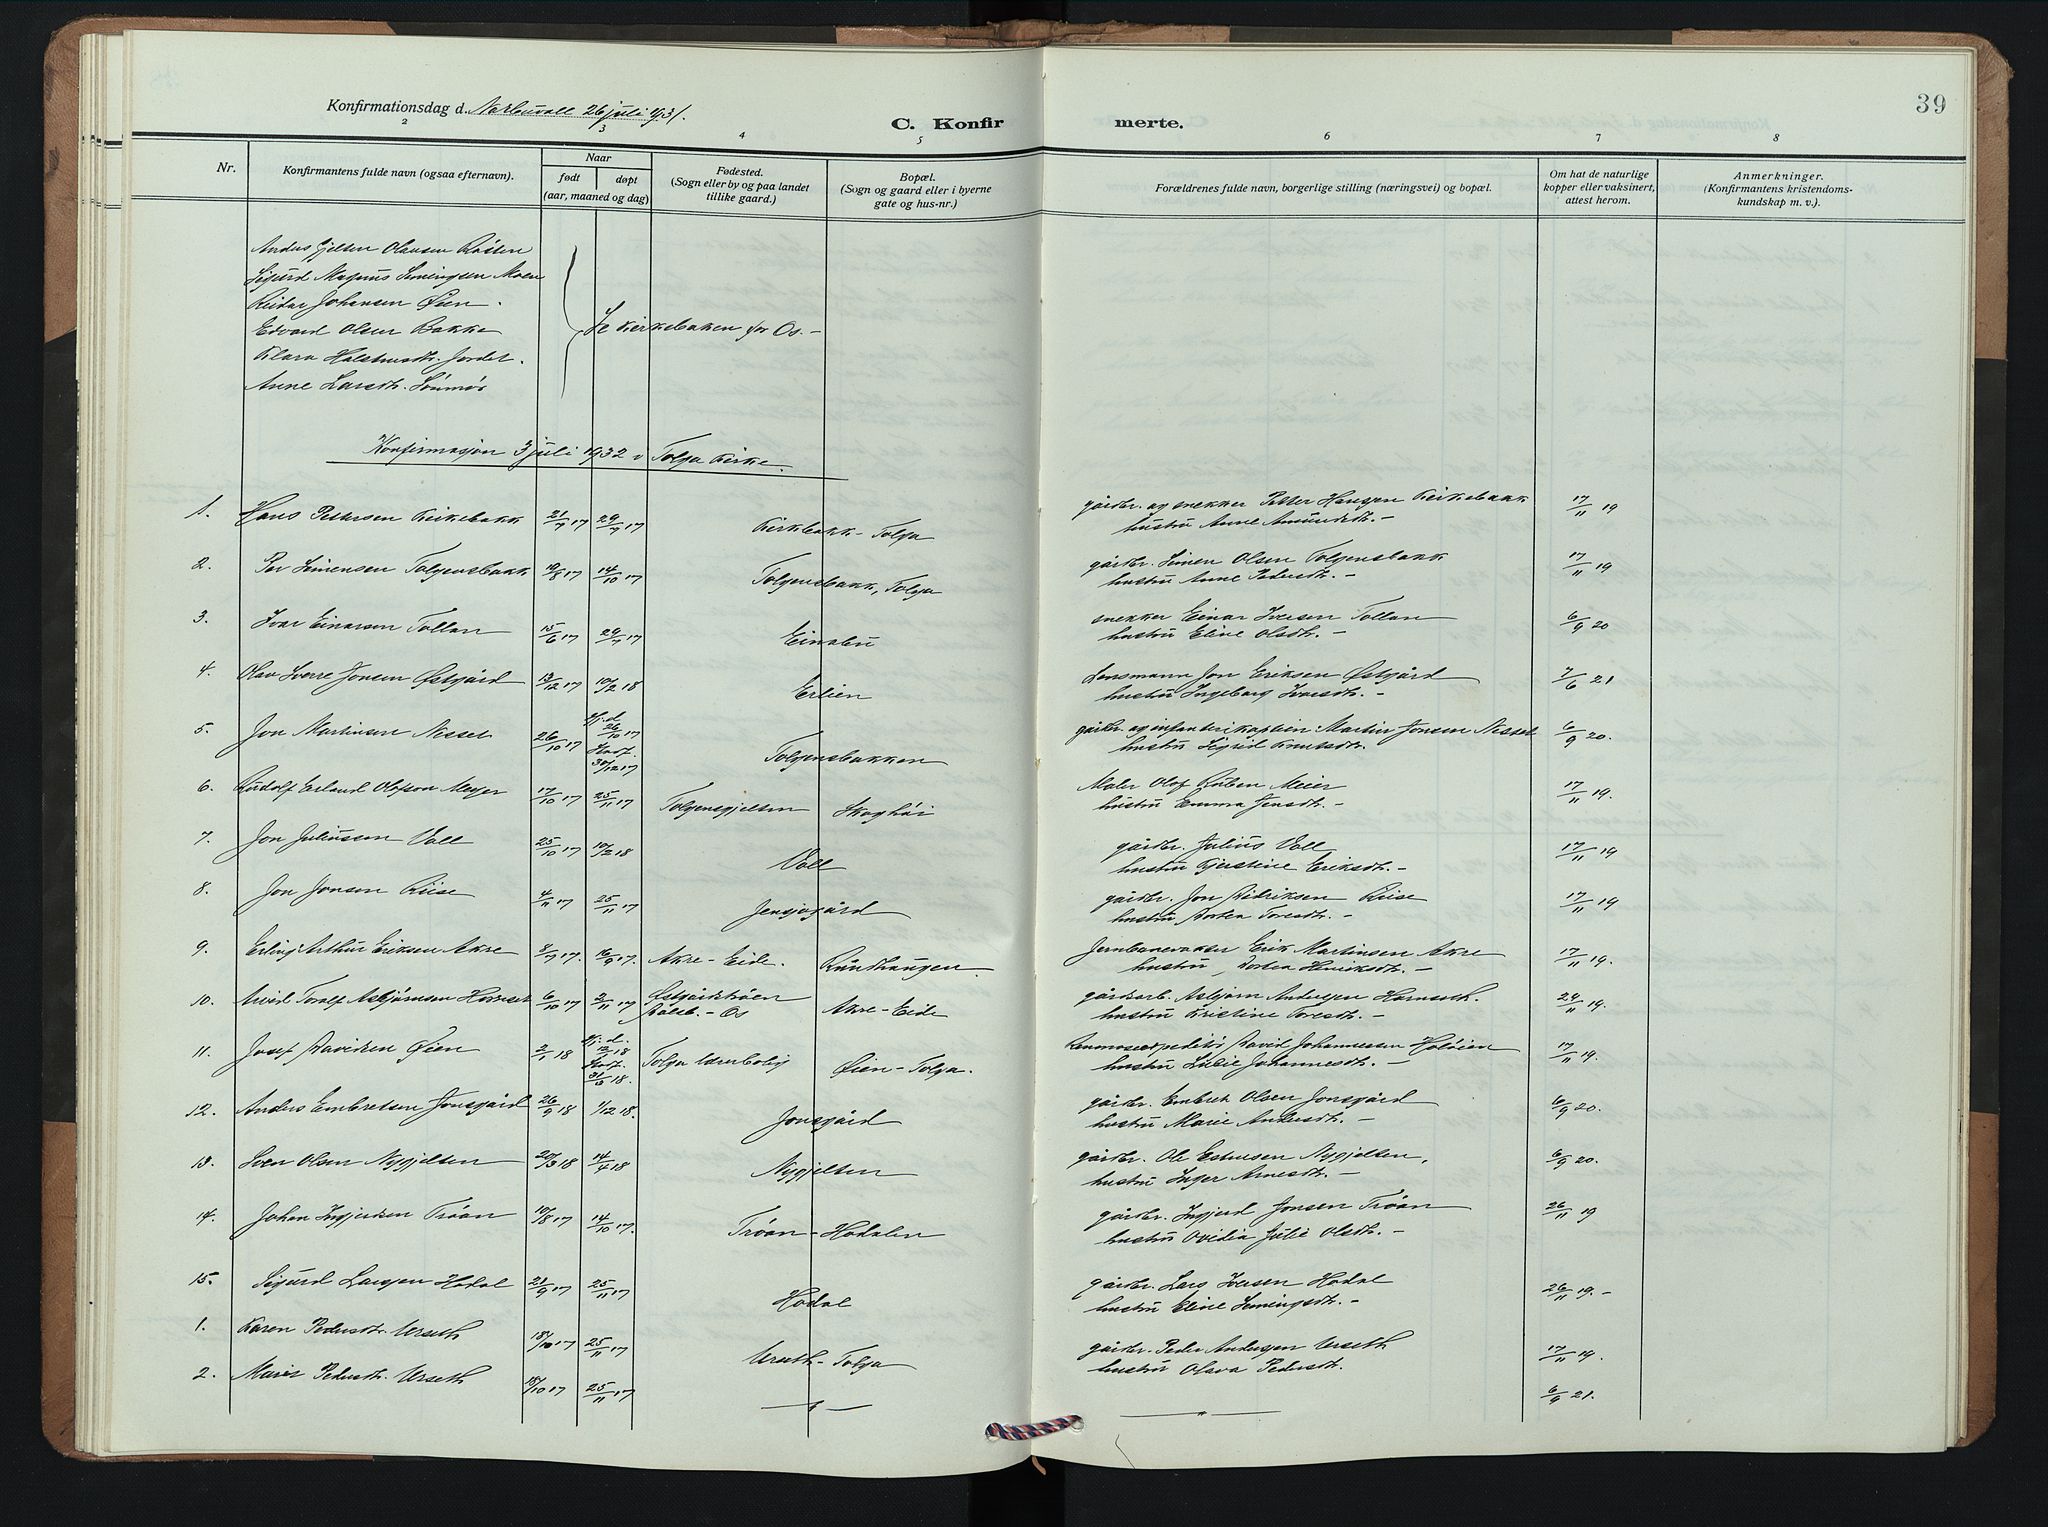 39
Konfirmationsdag d. 26 juli 1931.
C. Konfirmerte.
2 3 4 5 6 7 8
Nr.
Konfirmantens fulde navn (ogsaa efternavn).
Naar
født
døpt
(aar, maaned og dag)
Fødested.
(Sogn eller by og paa landet
tillike gaard.)
Bopæl.
(Sogn og gaard eller i byerne
gate og hus-nr.)
Forældrenes fulde navn, borgerlige stilling (næringsvei) og bopæl.
Om hat de naturlige
kopper eller vaksinert,
attest herom.
Anmerkninger.
(Konfirmantens kristendoms-
kundskap m. v.).
Anders Gjelten Olausen Røsten
Sigurd Magnus Semingsen Moen
Reidar Johansen Øien.
Edvard Olsen Bakke
Klara Halstensdtr. Jordet.
Anne Larsdtr.
Se Kirkeboken for Os.-
Konfirmasjon 3 juli 1932 i Tolga Kirke.
1. Hans Pettersen Kirkebakk 21/7 17 29/7 17 Kirkbakk-Tolga gårdbr. og snekker Petter Hansen Kirkebakk 17/11 19
hustru Anne Amundsdtr.-
2. Per Simensen Tolgensbakk 19/8 17 14/10 17 Tolgensbakk, Tolga gårdbr. Simen Olsen Tolgensbakk 17/11 19
hustru Anne Pedersdtr.-
3. Ivar Einarsen Tollan 15/6 17 29/7 17 Einabu snekker Einar Iversen Tollan 6/9 20
hustru Eline Olsdtr.-
4. Olav Sverre Jonsen Østgård 13/12 17 10/2 18 Erlien Lensmann Jon Eriksen Østgård 7/6 21
hustru Ingeborg Iversdtr.-
5. Jon Martinsen Nesset 26/10 17 Hj.d. 26/10 17 Tolgensbakken gårdbr. og infanterikaptein Martin Jonsen Nesset 6/9 20.
Stadf. 30/12 17 hustru Sigrid Knutsdtr.
6. Rudolf Erland Olofson Meyer 17/10 17 25/11 17 Tolgensgjelten Skoghøi Maler Olof Ruben Meier 17/11 19.
hustru Emma Jensdtr.-
7. Jon Juliussen Voll 25/10 17 10/2 18 Voll gårdbr. Julius Voll 17/11 19
hustru Kjerstine Eriksdtr.-
8. Jon Jonsen Riise 4/11 17 25/11 17 Jensjogård gårdbr. Jon Didriksen Riise 17/11 19
hustru Dortea Toresdtr.-
9. Erling Arthur Eriksen Akre 8/7 17. 16/9 17. Akre-Eide. Rundhaugen. Jernbanevakter Erik Martinsen Akre 17/11 19.
hustru, Dortea Henriksdtr.-
10. Arvid Toralf Asbjørnsen 6/10 17 2/11 17 Østgårdstrøen Akre-Eide gårdsarb. Asbjørn Andersen 24/11 19.
Dalsb.-Os hustru Kristine Toresdtr.-
11. Josef Davidsen Øien 2/1 18 Hj.d. 18 Tolga Øien-Tolga. David Johannessen Holøien 17/11 19.
Stadf. 31/3 18. hustru Lucie Johannesdtr.-
12. Anders Embretsen Jonsgård 26/9 18 1/12 18. Jonsgård gårdbr. Embret Olsen Jonsgård 6/9 20.
hustru Marie Andersdtr.-
13. Sven Olsen Nygjelten 20/3 18 14/4 18 Nygjelten gårdbr. Ole Estensen Nygjelten, 6/9 20.
hustru Inger Arnesdtr.-
14. Johan Ingjerdsen Trøan 19/8 17 14/10 17. Trøan-Hodalen gårdbr. Ingjerd Jonsen Trøan 26/11 19
hustru Ovidia Julie Olsdtr.-
15. Sigurd Larsen Hodal 21/9 17 25/11 17 Hodal gårdbr. Lars Iversen Hodal 26/11 19.-
hustru Eline Semingsdtr.-
1. Karen Pedersdtr. Urseth 18/10 17 25/11 17 Urseth-Tolga gårdbr. Peder Andersen Urseth 17/11 19.
hustru Olava Pedersdtr.
2. Marit Pedersdtr. Urseth 18/10 17 25/11 17 —"— —"— 6/9 21.